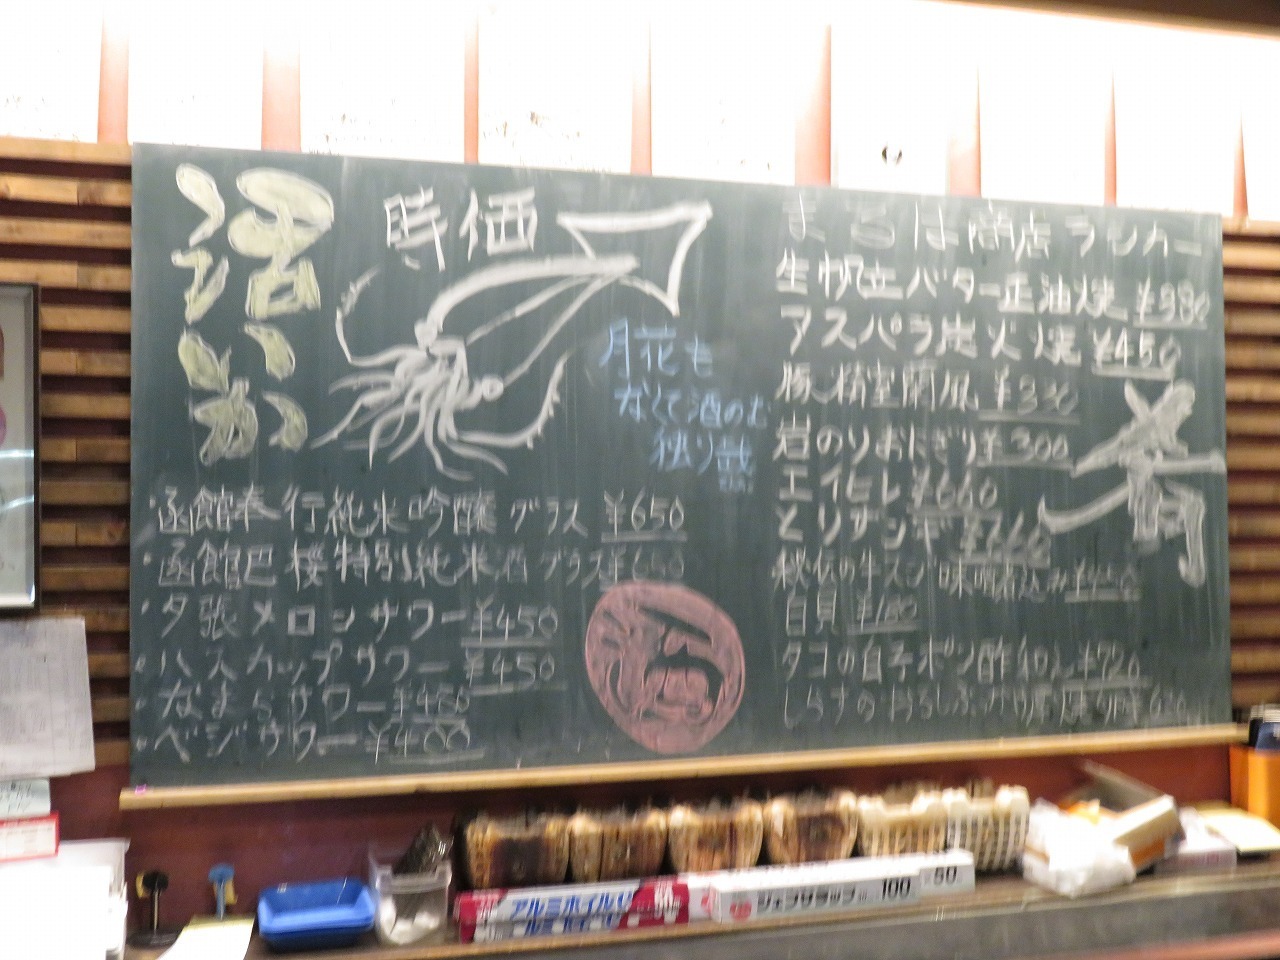 活いか
時価
月花も
なくて酒のむ
独り哉
・函館奉行純米吟醸 グラス ¥650
・函館巴桜特別純米酒 グラス
・夕張メロンサワー ¥450
・ハスカップサワー ¥450
・なまらサワー ¥450
・ベジサワー ¥400
まるは商店
生帆立バター正油焼
アスパラ炭火焼 ¥450
豚精室蘭風 ¥330
岩のりおにぎり ¥300
エイヒレ ¥660
とりザンギ
秘伝の牛スジ味噌煮込み
白貝
タコの白子ポン酢和え ¥720
春
アルミホイル
シェフラップ 100 50